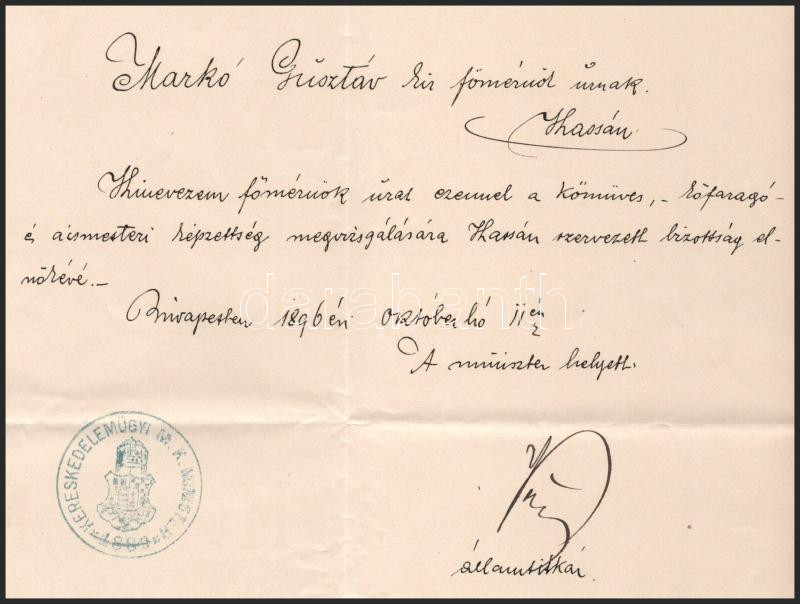 Markó Gusztáv kir főmérnök úrnak.
Kassán.
Kinevezem főmérnök urat ezennel a kőmüves,- kőfaragó-
és ácsmesteri képzettség megvizsgálására Kassán szervezett bizottság el-
nökévé.-
Budapesten 1896 évi október hó 11 én
A miniszter helyett.
államtitkár.
KERESKEDELEMÜGYI M. K. MINISTER
1889
darabanth